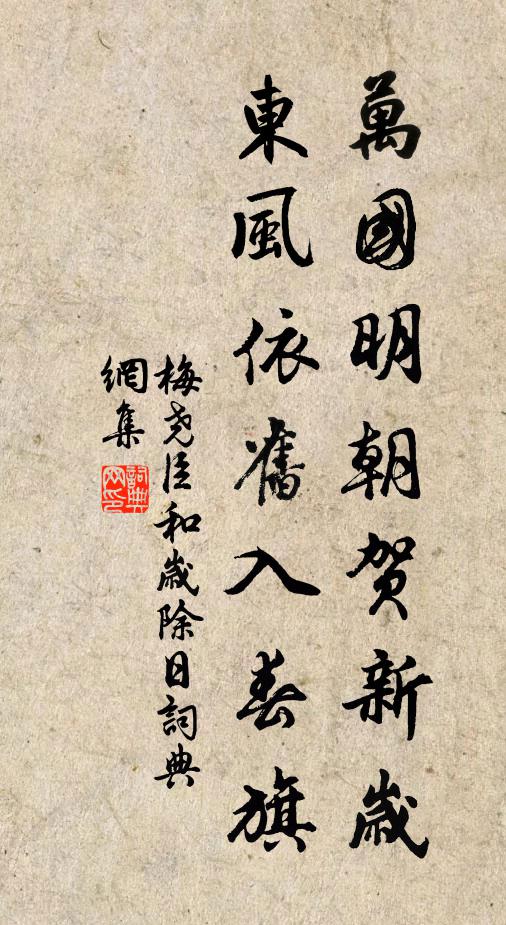 萬國明朝賀新歲
東風依舊入春旗
梅尧臣和歲除日詞典
網集
詞典網印